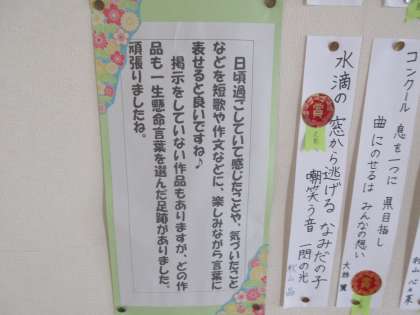 日頃過ごしていて感じたことや、気づいたこと
などを短歌や作文などに、楽しみながら言葉に
表せると良いですね♪
掲示をしていない作品もありますが、どの作
品も一生懸命言葉を選んだ足跡がありました。
頑張りましたね。
コンクール 息を一つに 県目指し
曲にのせるは みんなの想い
水滴の 窓から逃げる なみだの子
嘲笑う音 一閃の光
賞